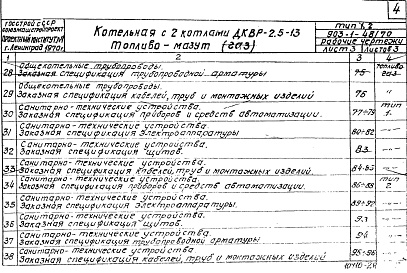 4
ГОССТРОЙ СССР
СОЮЗСАНТЕХПРОЕКТ
ПРОЕКТНЫЙ ИНСТИТУТ
г. Ленинград 1970г.
Котельная с 2 котлами ДКВР-2.5-13
Топливо - мазут (газ)
тип 1,2
903-1-48/70
рабочие чертежи
лист 3 листов 3
1 2 3 4
Общекотельные трубопроводы. топливо
28 Заказная спецификация трубопроводной арматуры 75 газ
Общекотельные трубопроводы.
29 Заказная спецификация кабелей, труб и монтажных изделий 76 "
Санитарно-технические устройства. тип
30 Заказная спецификация приборов и средств автоматизации. 77÷79 1.
Санитарно-технические устройства.
31 Заказная спецификация Электроаппаратуры 80-82
Санитарно-технические устройства.
32 Заказная спецификация щитов. 83
Санитарно-технические устройства.
33 Заказная спецификация кабелей, труб и монтажных изделий 84-85
Санитарно-технические устройства. тип
34 Заказная спецификация приборов и средств автоматизации. 86-88 2
Санитарно-технические устройства.
35 Заказная спецификация Электроаппаратуры.
Санитарно-технические устройства.
36 Заказная спецификация щитов. 93
Санитарно-технические устройства
37 Заказная спецификация трубопроводной арматуры 94
Санитарно-технические устройства
38 Заказная спецификация кабелей, труб и монтажных изделий 95-96